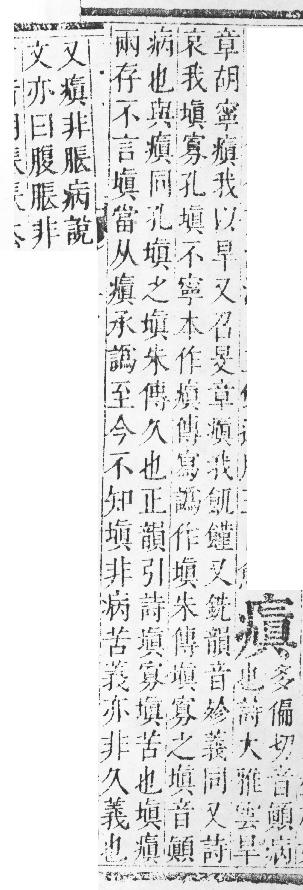 瘨
多偏切音顚病
也詩大雅雲旱
章胡寧瘨我以旱又召旻章瘨我飢饉又銑韻音㣶義同又詩
哀我塡寡孔塡不寧本作瘨傳寫譌作塡朱傳塡寡之塡音顚
病也與瘨同孔塡之塡朱傳久也正韻引詩塡寡塡苦也塡瘨
兩存不言塡當从瘨承譌至今不知塡非病苦義亦非久義也
又瘨非脹病說
文亦曰腹脹非